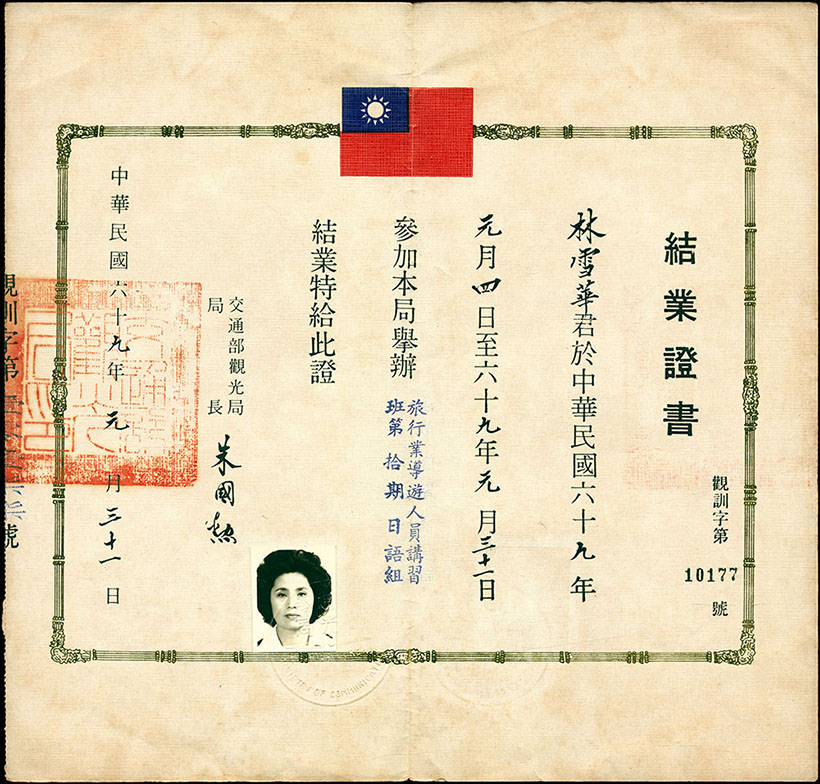 結業證書
觀訓字第
10177
號
林雪華君於中華民國六十九年
元月四日至六十九年元月三十一日
參加本局舉辦
旅行業導遊人員講習
班第拾期日語組
結業特給此證
交通部觀光局
局長
中華民國六十九年元月三十一日
觀訓字第
號